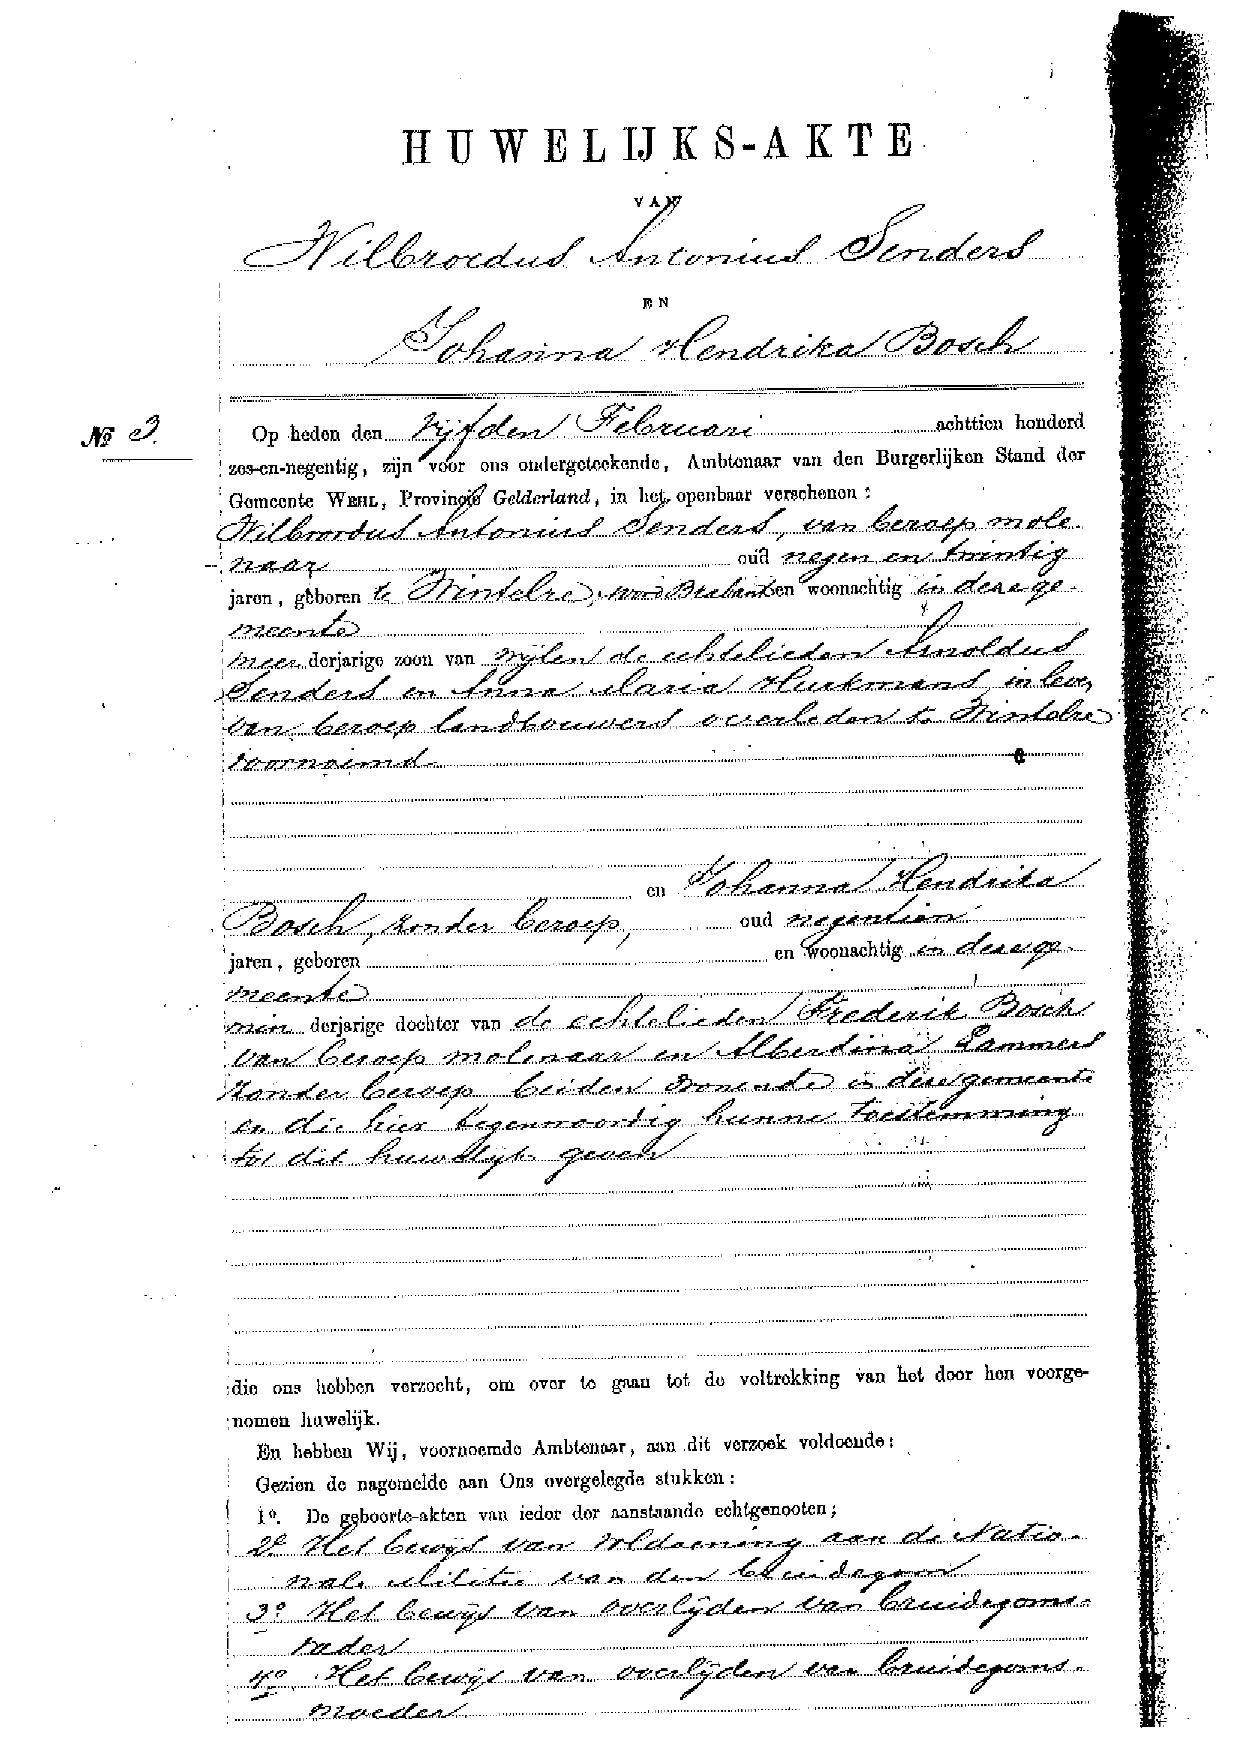 HUWELIJKS-AKTE
VAN
Wilbrordus Antonius Senders
EN
Johanna Hendrika Bosch
No 3.
Op heden den vijfden Februari achttien honderd
zes-en-negentig, zijn voor ons ondergeteekende, Ambtenaar van den Burgerlijken Stand der
Gemeente WEHL, Provincie Gelderland, in het openbaar verschenen:
Wilbrordus Antonius Senders, van beroep mole-
naar oud negen en twintig
jaren, geboren te Wintelre, Noord Brabant en woonachtig in deze ge-
meente
meerderjarige zoon van wijlen de echtelieden Arnoldus
Senders en Anna Maria Hurkmans, in leven
van beroep landbouwers overleden te Wintelre
voornoemd.
en Johanna Hendrika
Bosch, zonder beroep, oud negentien
jaren, geboren en woonachtig in deze ge-
meente
minderjarige dochter van de echtelieden Frederik Bosch
van beroep molenaar en Alberdina Lammers
zonder beroep beiden wonende in deze gemeente
en die hier tegenwoordig hunne toestemming
tot dit huwelijk geven
die ons hebben verzocht, om over te gaan tot de voltrekking van het door hen voorge-
nomen huwelijk.
En hebben Wij, voornoemde Ambtenaar, aan dit verzoek voldoende:
Gezien de nagemelde aan Ons overgelegde stukken:
1o. De geboorte-akten van ieder der aanstaande echtgenooten;
2o. Het bewijs van voldoening aan de Natio-
nale Militie van den bruidegom
3o Het bewijs van overlijden van bruidegoms-
vader
4o. Het bewijs van overlijden van bruidegoms-
moeder